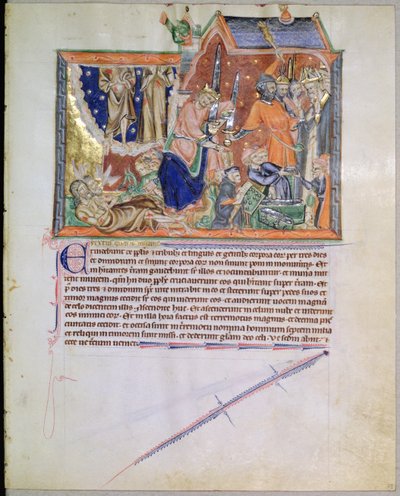 Et videbunt de pplis et tribub; et linguis et gentib; corpora eor per tres dies
et dimidium et corpora eor non sinent poni in monumtis. Et in
habitantes terram gaudebunt sup illos et iocundabuntur. et mun'a mit
tent invicem. qm hij duo pphe cruciaverunt eos qui habitant super tram. Et
p' dies tres et dimidium spc vite intrabit in eos et steterunt super pedes suos et
timor magnus cecidit sr eos qui viderunt eos. et audierunt vocem magnā
de celo dicentem illis ascendite huc. Et ascenderunt in celum in nube et viderunt
eos inimici eor. Et in illa hora factus est terremotus magnus et decima pars
civitatis cecidit. et occisa sunt in tremotu nomina hominum septem milia
et reliqui in timorem sunt missi. et dederunt glam deo celi. Ve scdm abiit et
ecce ve tercium veniet